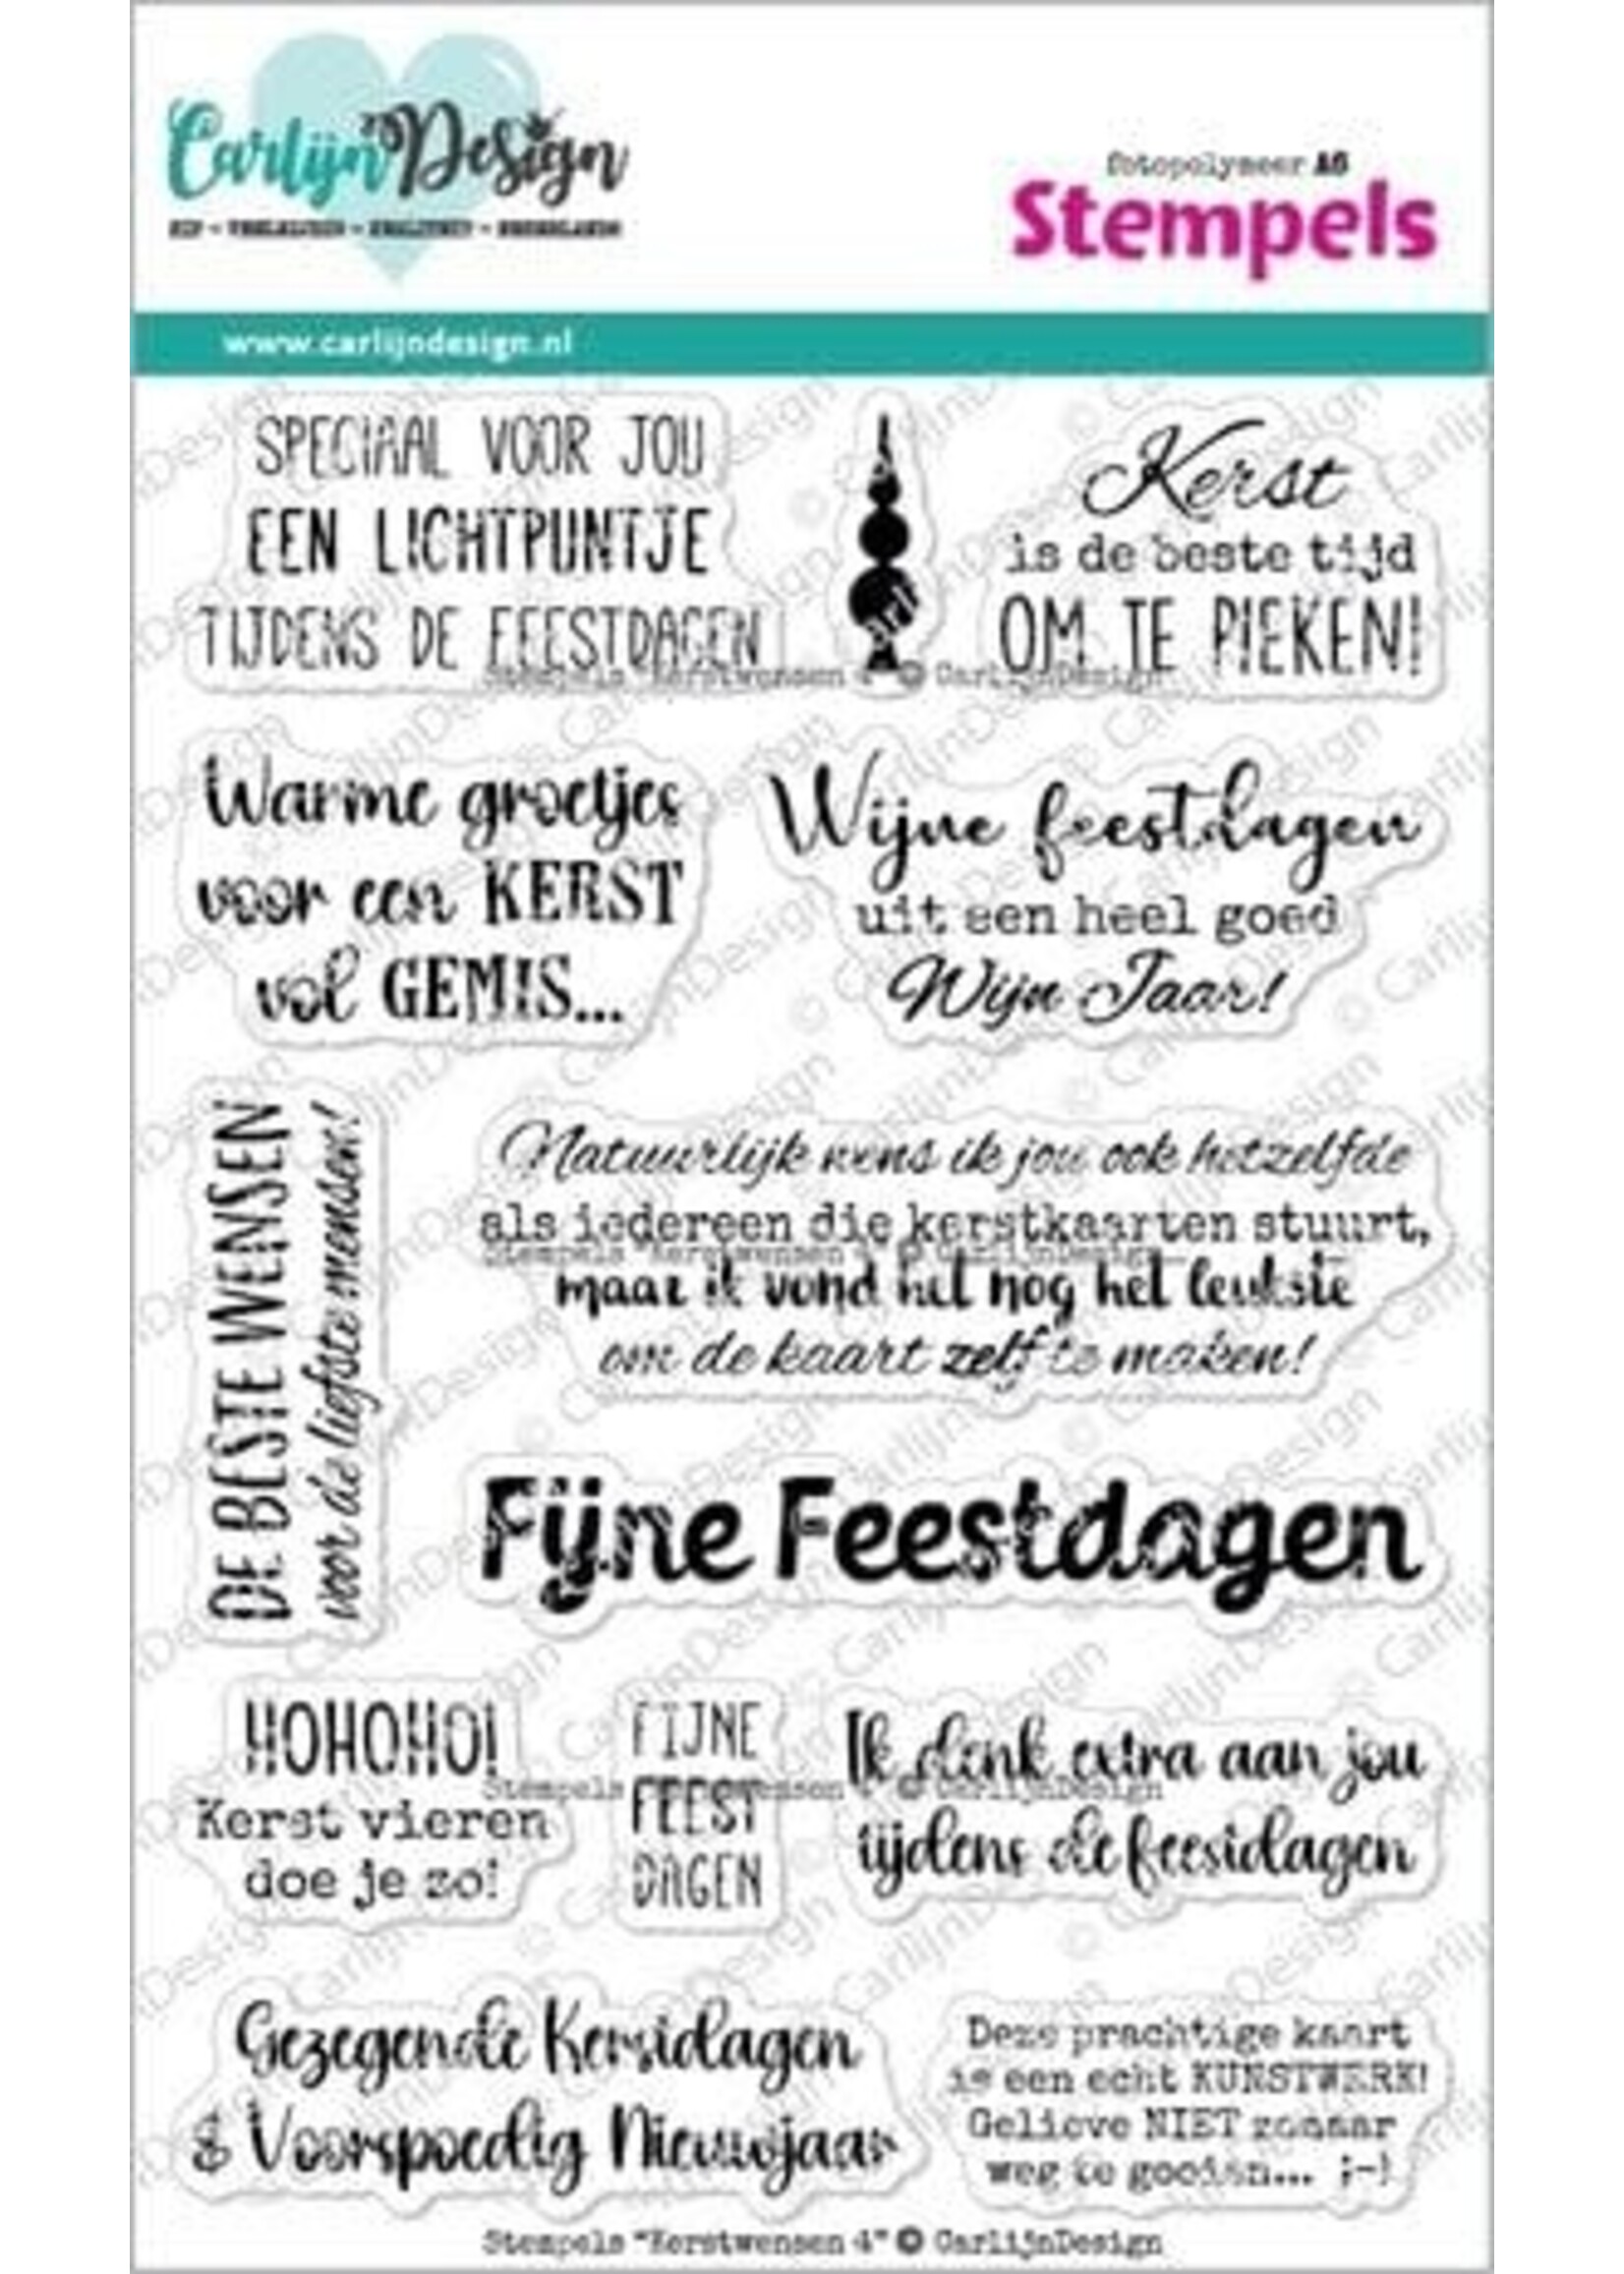 CarlijnDesign
fotopolymeer A6
Stempels
www.carlijndesign.nl
SPECIAAL VOOR JOU
EEN LICHTPUNTJE
TIJDENS DE FEESTDAGEN
Kerst
is de beste tijd
OM TE PIEKEN!
Warme groetjes
voor een KERST
vol GEMIS...
Wijne feestdagen
uit een heel goed
Wijn Jaar!
DE BESTE WENSEN
voor de liefste mensen!
Natuurlijk wens ik jou ook hetzelfde
als iedereen die kerstkaarten stuurt,
maar ik vond het nog het leukste
om de kaart zelf te maken!
Fijne Feestdagen
HOHOHO!
Kerst vieren
doe je zo!
FIJNE
FEEST
DAGEN
Ik denk extra aan jou
tijdens de feestdagen
Gezegende Kerstdagen
& Voorspoedig Nieuwjaar
Deze prachtige kaart
is een echt KUNSTWERK!
Gelieve NIET zomaar
weg te gooien... ;-)
Stempels "Kerstwensen 4" © CarlijnDesign